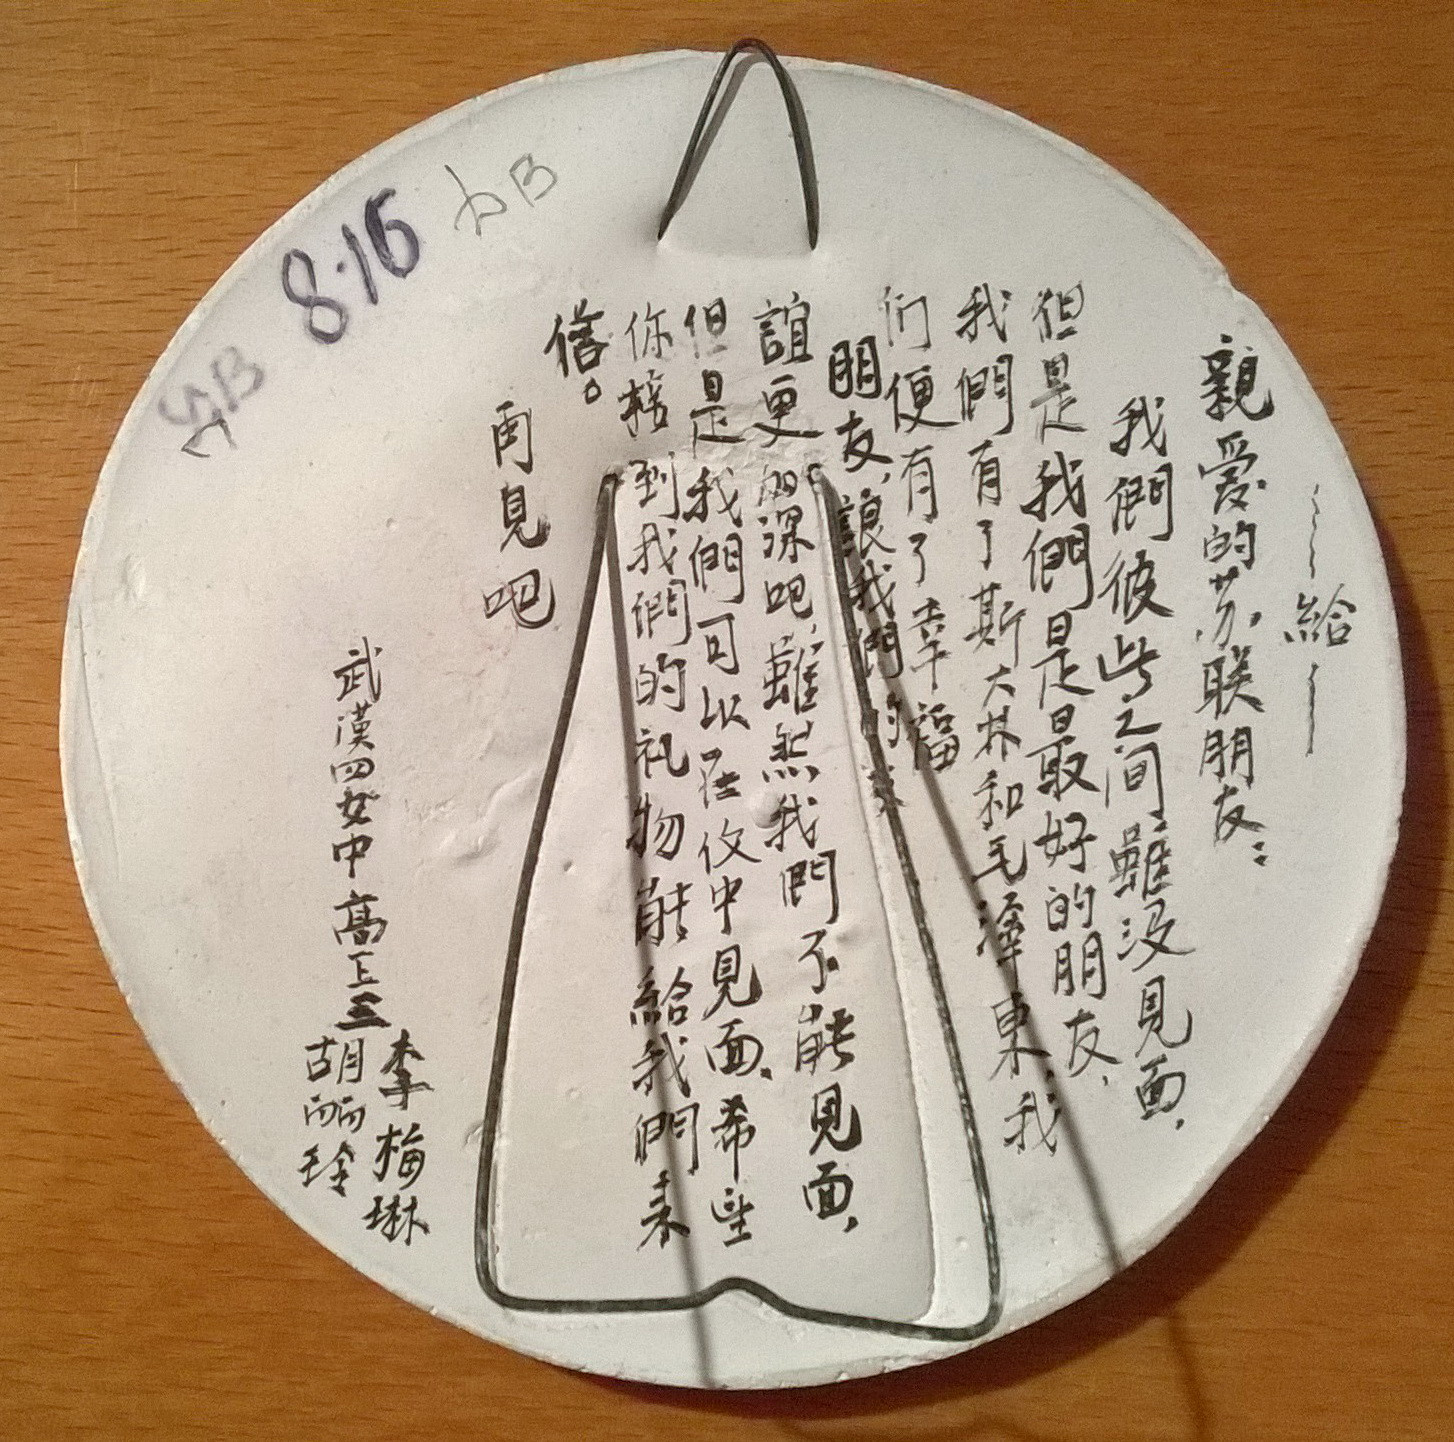 ～～給～～
親愛的苏联朋友：
我們彼此之间，雖没見面，
但是我們是最好的朋友，
我們有了斯大林和毛澤東，我
们便有了幸福
朋友，讓我們的友
誼更加深吧，雖然我們不能見面，
但是我們可以在信中見面，希望
你接到我們的礼物能給我們来
信。
再見吧
武漢四女中高上三
李梅琳
胡炳玲
8·16